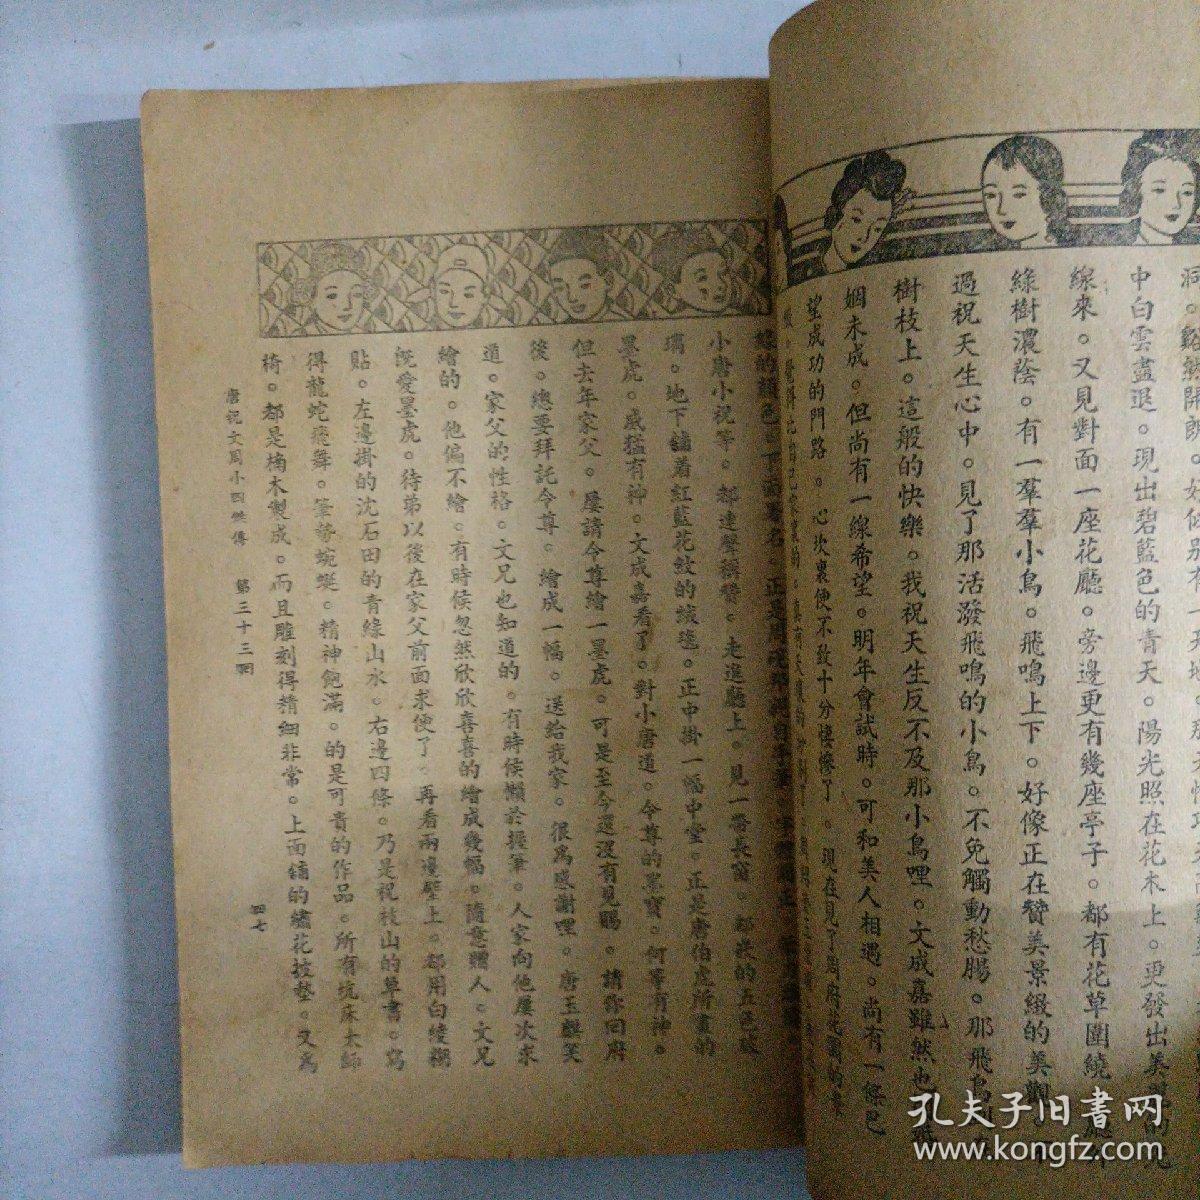 中白雲盡退。現出碧藍色的青天。陽光照在花木上。更發出美麗的
線來。又見對面一座花廳。旁邊更有幾座亭子。都有花草圍繞
綠樹濃蔭。有一羣羣小鳥。飛鳴上下。好像正在贊美景緻的美觀
過祝天生心中。見了那活潑飛鳴的小鳥。不免觸動愁腸。那飛鳥
樹枝上。這般的快樂。我祝天生反不及那小鳥哩。文成嘉雖然也
姻未成。但尚有一線希望。明年會試時。可和美人相遇。尚有一條巴
望成功的門路。心坎裏便不致十分悽慘了。現在見了周府花園的
小唐小祝等。都連聲稱贊。走進廳上。見一帶長窗。都嵌的五色玻
璃。地下鋪着紅藍花紋的絨毯。正中掛一幅中堂。正是唐伯虎所畫的
墨虎。威猛有神。文成嘉看了。對小唐道。令尊的墨寶。何等有神。
但去年家父。屢請令尊繪一墨虎。可是至今還沒有見賜。請你回府
後。總要拜託令尊。繪成一幅。送給我家。很爲感謝哩。唐玉麒笑
道。家父的性格。文兄也知道的。有時候懶於握筆。人家向他屢次求
繪的。他偏不繪。有時候忽然欣欣喜喜的繪成幾幅。隨意贈人。文兄
旣愛墨虎。待弟以後在家父前面求便了。再看兩邊壁上。都用白綾裱
貼。左邊掛的沈石田的青綠山水。右邊四條。乃是祝枝山的草書。寫
得龍蛇飛舞。筆勢蜿蜒。精神飽滿。的是可貴的作品。所有炕床太師
椅。都是楠木製成。而且雕刻得精細非常。上面鋪的繡花披墊。又爲
唐祝文周小四傑傳 第三十三回 四七
孔夫子旧书网
www.kongfz.com